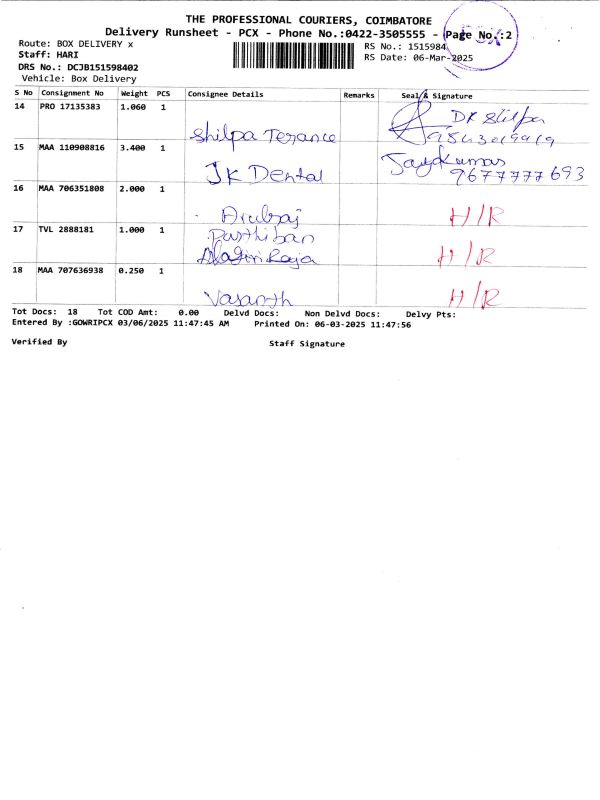 THE PROFESSIONAL COURIERS, COIMBATORE
Delivery Runsheet - PCX - Phone No.:0422-3505555 - Page No.:2
Route: BOX DELIVERY x RS No.: 1515984
Staff: HARI RS Date: 06-Mar-2025
DRS No.: DCJB151598402
Vehicle: Box Delivery
S No Consignment No Weight PCS Consignee Details Remarks Seal & Signature
14 PRO 17135383 1.060 1
Shilpa Terance DR Shilpa
15 MAA 110908816 3.400 1
JK Dental Jayakumar
9677777693
16 MAA 706351808 2.000 1
Arulraj H/R
17 TVL 2888181 1.000 1
Parthiban
Alagiri Raja H/R
18 MAA 707636938 0.250 1
Vasanth H/R
Tot Docs: 18 Tot COD Amt: 0.00 Delvd Docs: Non Delvd Docs: Delvy Pts:
Entered By :GOWRIPCX 03/06/2025 11:47:45 AM Printed On: 06-03-2025 11:47:56
Verified By Staff Signature